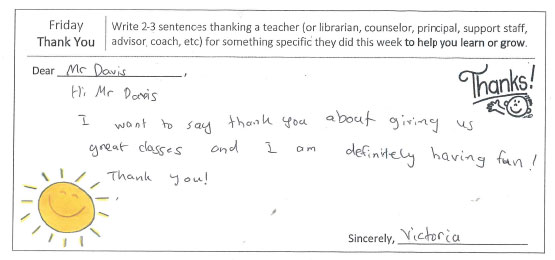 Friday
Thank You
Write 2-3 sentences thanking a teacher (or librarian, counselor, principal, support staff,
advisor, coach, etc) for something specific they did this week to help you learn or grow.
Dear Mr Davis,
Thanks!
Hi Mr Davis
I want to say thank you about giving us
great classes and I am definitely having fun!
Thank you!
Sincerely, Victoria